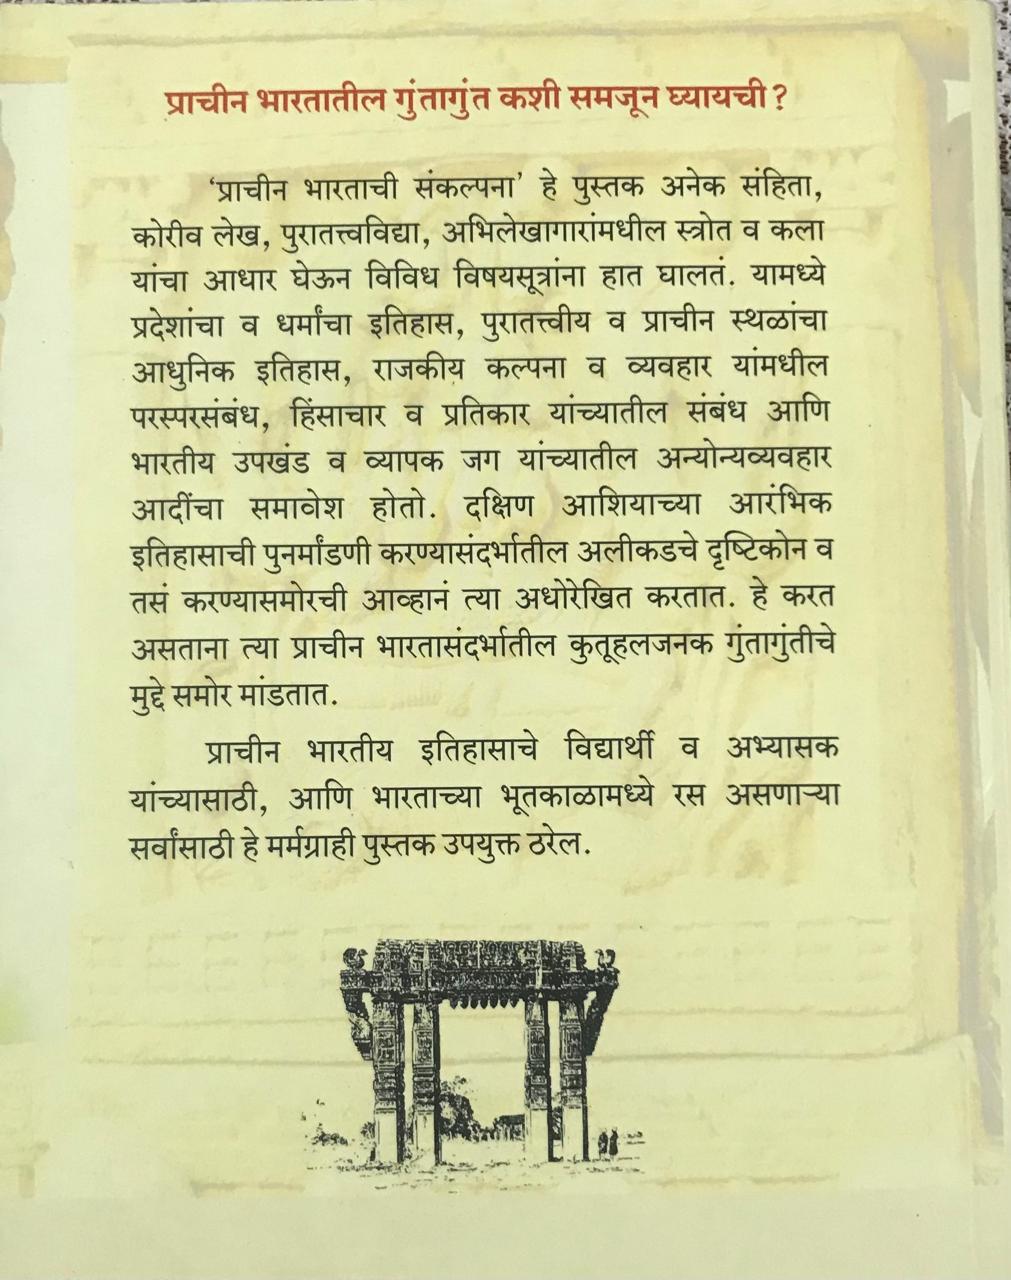 प्राचीन भारतातील गुंतागुंत कशी समजून घ्यायची?
‘प्राचीन भारताची संकल्पना’ हे पुस्तक अनेक संहिता,
कोरीव लेख, पुरातत्त्वविद्या, अभिलेखागारांमधील स्त्रोत व कला
यांचा आधार घेऊन विविध विषयसूत्रांना हात घालतं. यामध्ये
प्रदेशांचा व धर्मांचा इतिहास, पुरातत्त्वीय व प्राचीन स्थळांचा
आधुनिक इतिहास, राजकीय कल्पना व व्यवहार यांमधील
परस्परसंबंध, हिंसाचार व प्रतिकार यांच्यातील संबंध आणि
भारतीय उपखंड व व्यापक जग यांच्यातील अन्योन्यव्यवहार
आदींचा समावेश होतो. दक्षिण आशियाच्या आरंभिक
इतिहासाची पुनर्मांडणी करण्यासंदर्भातील अलीकडचे दृष्टिकोन व
तसं करण्यासमोरची आव्हानं त्या अधोरेखित करतात. हे करत
असताना त्या प्राचीन भारतासंदर्भातील कुतूहलजनक गुंतागुंतीचे
मुद्दे समोर मांडतात.
प्राचीन भारतीय इतिहासाचे विद्यार्थी व अभ्यासक
यांच्यासाठी, आणि भारताच्या भूतकाळामध्ये रस असणाऱ्या
सर्वांसाठी हे मर्मग्राही पुस्तक उपयुक्त ठरेल.